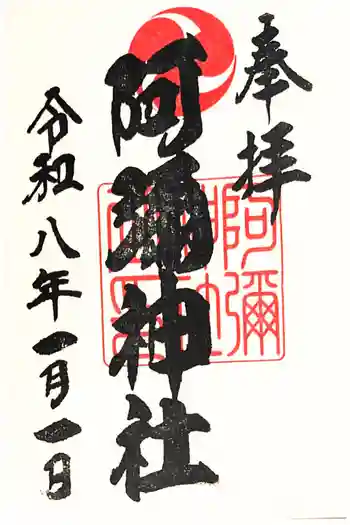 奉拝
阿彌神社
令和八年一月一日
阿彌
神社